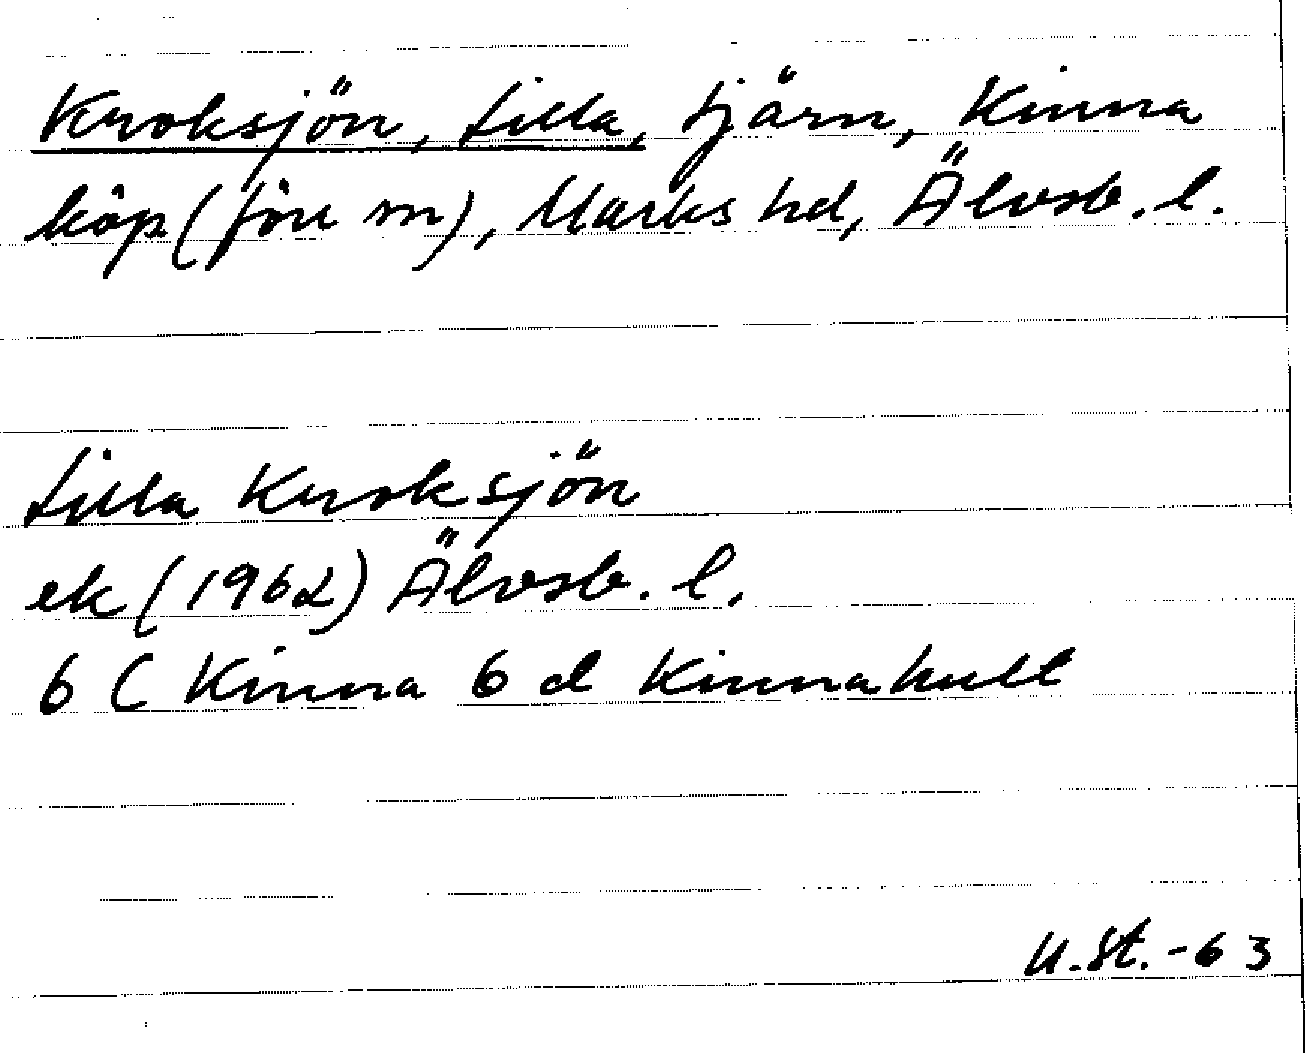 Kroksjön, Lilla, tjärn, Kinna
köp (förr sn), Marks hd, Älvsb. l.
Lilla Kroksjön
ek (1962) Älvsb. l.
6 C Kinna 6 d Kinnahult
U.St.-63